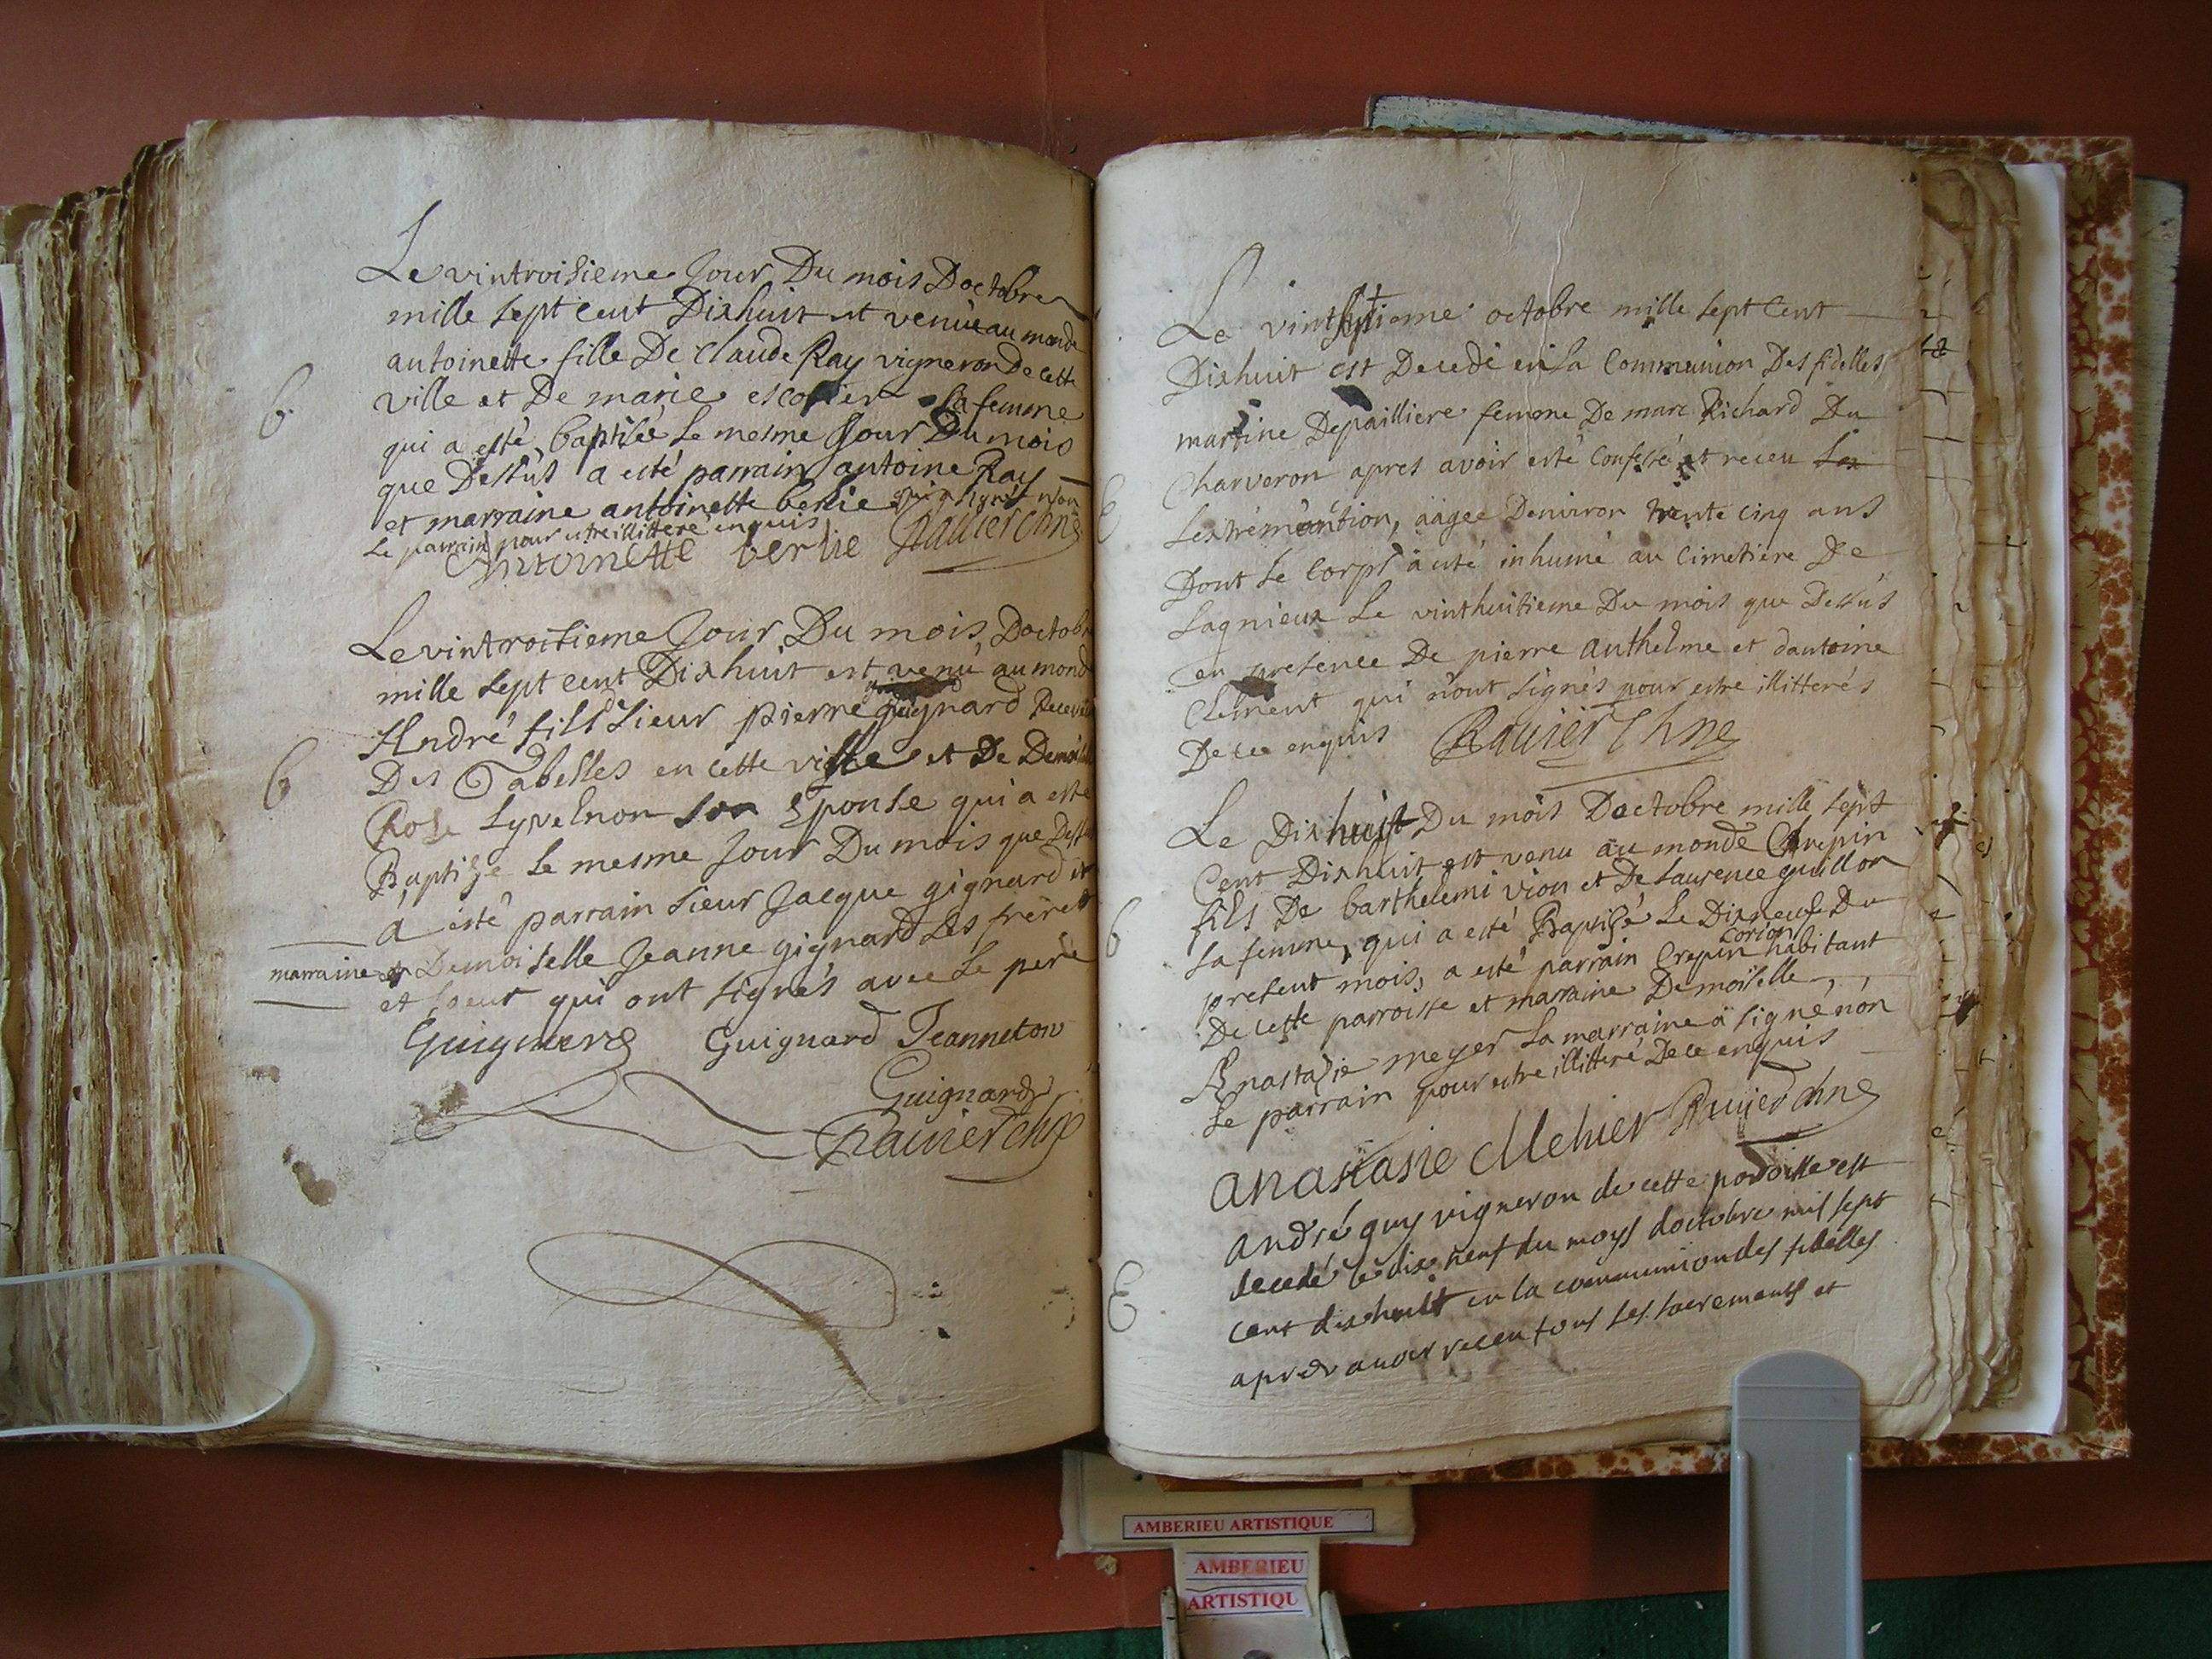 Le vintroisieme Jour Du mois Doctobre
mille sept cent Dixhuit est venüe au monde
antoinette fille De Claude Ray vigneron De cette
ville et De marie escofier sa femme
b
qui a esté baptisée le mesme Jour Du mois
que Dessus a esté parrain antoine Ray
et marraine antoinette berlie qui a signé non
le parrain pour estre illitteré enquis
Antoinette berlie Ravier Chne
Le vintroisieme Jour Du mois Doctobre
mille sept cent Dixhuit est venu au monde
André fils sieur pierre guignard Receveur
b
Des Gabelles en cette ville et De Demoiselle
Rose son Eponse qui a esté
Baptisé le mesme Jour Du mois que Dessus
a esté parrain sieur Jacque gignard et
marraine Demoiselle Jeanne gignard Les frere
et soeur qui ont signés avec le pere
Guignard Guignard Jeanneton
Guignard
Ravier Chne
Le vintsptieme octobre mille sept Cent
Dixhuit est Decedé en la Communion Des fidelles
martine Depailliere femme De marc Richard Du
Charveron apres avoir esté Confessé et receu Lex
E
Lextrémontion, aagee Denviron trente cinq ans
Dont le corps a eté inhumé au Cimetiere De
Lagnieux Le vinthuitieme Du mois que Dessus
en presence De pierre anthelme et dantoine
Clement qui n'ont signés pour estre illitterés
De ce enquis Ravier Chne
Le Dixhuit Du mois Doctobre mille sept
Cent Dixhuit est venu au monde Crepin
fils De barthelemi vion et De Laurence guillon
b
sa femme, qui a esté Baptisé Le Dixneuf Du
present mois, a esté parrain Crepin corion habitant
De cette parroisse et marraine Demoiselle
Anastasie meyer La marraine a signé non
Le parrain pour estre illitteré De ce enquis
anastasie Mehier Ravier Chne
andré guy vigneron de cette paroisse est
decedé le dix neuf du moys doctobre mil sept
E
cent dixhuit en la communion des fidelles
apres avoir receu tous les sacrements et
AMBERIEU ARTISTIQUE
AMBERIEU
ARTISTIQU